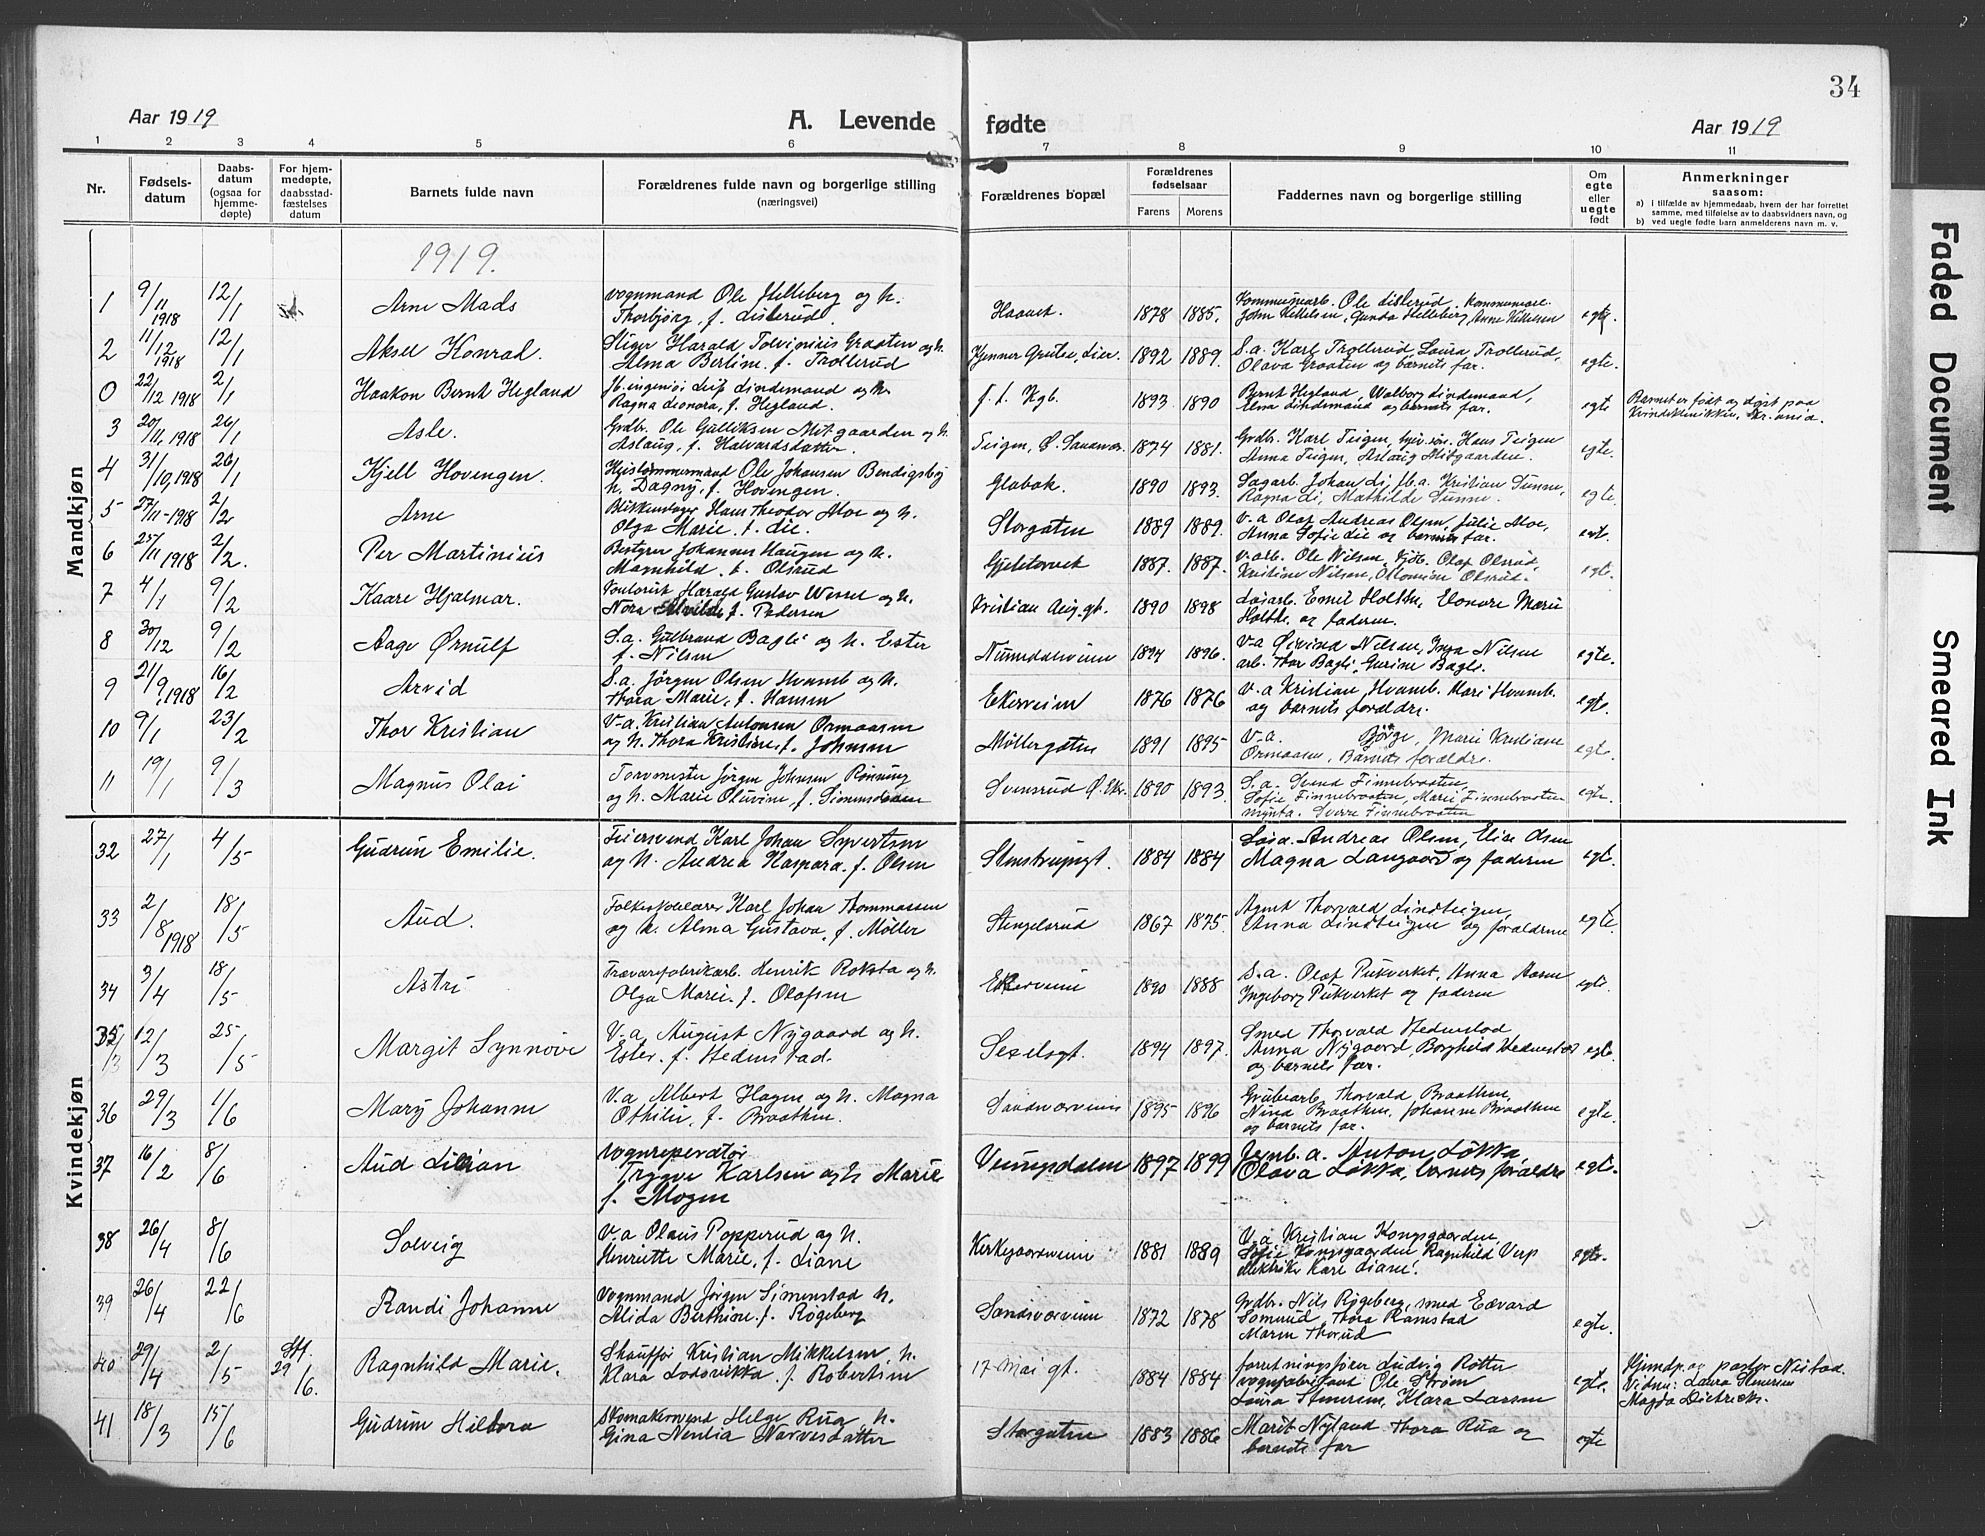 34
Aar 1919
A. Levende fødte
Aar 1919
1 2 3 4 5 6 7 8 9 10 11
Nr.
Fødsels-
datum
Daabs-
datum
(ogsaa for
hjemme-
døpte)
For hjem-
medøpte,
daabsstad-
fæstelses
datum
Barnets fulde navn
Forældrenes fulde navn og borgerlige stilling
(næringsvei)
Forældrenes bopæl
Forældrenes
fødselsaar
Farens Morens
Faddernes navn og borgerlige stilling
Om
egte
eller
uegte
født
Anmerkninger
saasom:
a) i tilfælde av hjemmedaab, hvem der har forrettet
samme, med tilføielse av to daabsvidners navn, og
b) ved uegte fødte barn anmelderens navn m. v.
Mandkjøn
1919.
1 9/11 1918 12/1 Arne Mads
vognmand Ole Helleberg og h.
Thorbjørg, f. Listerud
Haavet 1878 1885.
Kommunearb. Ole Listerud, Kommunearb.
John Kittelsen, Gunda Helleberg, Anne Kittelsen
egte.
2 11/12 1918 12/1 Aksel Konrad.
Stiger Harald Tolvinius Graaten og h.
Alma Bertine f. Trollerud
1892 1889.
S.a. Karl Trollerud, Laura Trollerud,
Olava Graaten og barnets far.
egte.
0 22/12 1918 2/1 Haakon Bernt Hegland
Jb. ingeniør Leif Lindemand og h.
Ragna Leonora, f. Hegland.
f. t. Kgb. 1893 1890
Bernt Hegland, Walborg Lindemand,
Elna Lindemand og barnets far.
egte
Barnet er født og døpt paa
Kvindeklinikken, Kr.ania.
3 20/11 1918 26/1 Asle.
Grdbr. Ole Gulliksen Mitgaarden og h.
Aslaug, f. Halvardsdatter
Teigen, Ø. Sandsvær. 1874 1881.
Grdbr. Karl Teigen, Hans Teigen
Anna Teigen, Aslaug Mitgaarden.
egte.
4 31/10 1918 26/1 Kjell Hovengen.
Ole Johansen Bendigsby
h. Dagny, f. Hovengen.
Glabak. 1890 1893.
Sagarb. Johan Li, Jb.a. Kristian Sunne,
Ragna Li, Mathilde Sunne.
egte
5 27/11-1918 2/2 Arne
Blikkenslager Hans Theodor Moe og h.
Olga Marie f. Lie.
Storgaten 1889 1889.
V.a Olaf Andreas Olsen, Julie Moe,
Anna Sofie Lie og barnets far.
egt.
6 25/11 1918 2/2. Per Martinius
Bestyrer Johannes Haugen og h.
Magnhild, f. Olsrud
Gjetetorvet 1887. 1887.
V.arb. Ole Nilsen, Olaf Olsrud,
Kristine Nilsen, Olsrud.
egte.
7 4/1 9/2 Kaare Hjalmar.
Kontorist Harald Gustav Wessel og h.
Nora Alvilde f. Pedersen
Kristian Aug. gt. 1890 1898
Løsarb. Emil Holthe, Elenore Marie
Holthe og faderen.
8 30/12 9/2 Aage Ørnulf
S.a. Gulbrand Bagli og h. Ester
f. Nilsen
Numedalsveien 1894 1896.
V-a Øivind Nilsen, Inga Nilsen
arb. Thor Bagli, Gurine Bagli.
egte.
9 21/9 1918 16/2 Arvid
S.a. Jørgen Olsen Hvamb og h.
Thora Marie, f. Hansen
Ekerveien 1876 1876
V.a Kristian Hvamb. Kari Hvamb.
og barnets forældre.
egte.
10 9/1 23/2 Thor Kristian
V-a. Kristian Antonsen Ormaasen
og h. Thora Kristine, f. Johnsen
Møllergaten 1891 1895
V-a. Børge, Marie Kristiane
Ormaasen, Barnets forældre.
egte.
11 19/1 9/3 Magnus Olai
Torvmester Jørgen Johnsen Rønning
og h. Marie Oluvine, f. Simensdatter
Svensrud Ø. Eker. 1890 1893.
S.a. Svend Finnebraaten,
Sofie Finnebraaten, Marie Finnebraaten
Sverre Finnebraaten
egte.
Kvindekjøn
32 27/1 4/5 Gudrun Emilie.
Feiersvend Karl Johan Syvertsen
og h. Andrea Kaspara. f. Olsen
Stenstrupsgt. 1884 1884
Andreas Olsen, Elise Olsen
Magna Langaard og faderen
egt.
33 2/8 1918 18/5 Aud.
Folkeskolelærer Karl Johan Thommassen
og h. Alma Gustava, f. Møller
Stengelsrud 1867 1875.
Agent Thorvald Lindteigen,
Anna Lindteigen og forældrene
egte.
34 3/4 18/5 Astri
Trævarefabrikarb. Henrik Roksta og h.
Olga Marie. f. Olafsen
Ekerveien 1890 1888
S.a. Olaf Pukverket, Anna Hasne
Ingeborg Pukverket og faderen
egte.
35 12/3 25/5 Margit Synnøve
V.a August Nygaard og h.
Ester. f. Hedenstad.
Sexelsgt. 1894 1897.
Smed Thorvald Hedenstad
Anna Nygaard, Borghild Hedenstad
og barnets far.
egte.
36 29/3 1/6 Mary Johanne
V.a Albert Hagen og h. Magna
Othilie, f. Braathen.
Sandsværveien 1895 1896
Grubearb Thorvald Braathen,
Nina Braathen, Johanne Braathen
og barnets far.
egte.
37 16/2 8/6 Aud Lilian
Vognreparatør
Trygve Karlsen og h. Marie
f. Mogen
Veungsdalen 1897 1899
Jernb. a. Anton Løkka,
Olava Løkka, barnets forældre
egte.
38 26/4 8/6 Solveig
V.a Olaus Popperud og h.
Henriette Marie, f. Liane
Kirkegaardsveien 1881 1889
V.a Kristian Kongsgaarden
Sofie Kongsgaarden Ragnhild Verp
elektriker Karl Liane.
egte.
39 26/4 22/6 Randi Johanne
Vognmand Jørgen Simenstad h.
Alida Berthine. f. Røgeberg
Sandsværveien 1872 1878
Grdbr. Nils Røgeberg, smed Edvard
Somrud, Thora Ramstad
Maren Thorud
egte.
40 29/4 2/5 Stf. 29/6. Ragnhild Marie.
Skauffør Kristian Mikkelsen, h.
Klara Lodovikka, f. Robertsen
17 Mai gt. 1884 1884
forretningsfører Ludvig Rotter
Ole Strøm
Laura Steversen, Klara Larsen
egte.
Hjemdp. av pastor Nistad.
Vidner: Laura Steversen
Magda Dietrichs.
41 18/3 15/6 Gudrun Hildora
Skomakersvend Helge Rua h.
Gina Nenlia Narvesdatter
Storgaten 1883 1886
Marit Nyland Thora Rua og
barnets far
egte
Faded Document
Smeared Ink